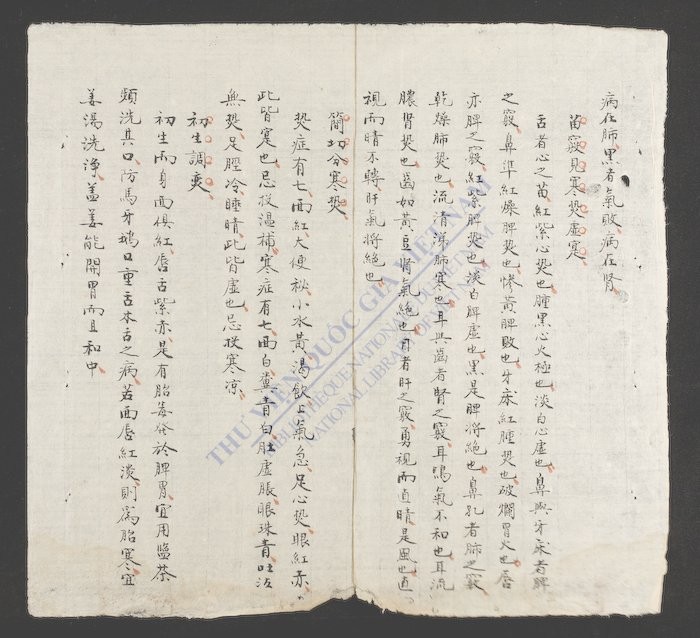 病在肺黑者氣敗病在腎
苗竅見寒熱虛寔
舌者心之苗紅紫心熱也腫黑心火極也淡白心虛也鼻與牙床者脾
之竅鼻準紅燥脾熱也慘黃脾敗也牙床紅腫熱也破爛胃火也唇
亦脾之竅紅紫脾熱也淡白脾虛也黑是脾將絕也鼻孔者肺之竅
乾燥肺熱也流清涕肺寒也耳與齒者腎之竅耳鳴氣不和也耳流
膿腎熱也齒如黃豆腎氣絕也目者肝之竅勇視而直睛是風也直
視而睛不轉肝氣將絕也
簡切分寒熱
熱症有七面紅大便秘小水黃渴飲上氣急足心熱眼紅赤
此皆寔也忌投溫補寒症有七面白糞青白肚虛脹眼珠青吐泻
無熱足脛冷睡睛此皆虛也忌投寒凉
初生調爕
初生而身面俱紅唇舌紫赤是有胎毒發於脾胃宜用盬茶
頻洗其口防馬牙鵝口重舌木舌之病若面唇紅淡則為胎寒宜
姜湯洗淨盖姜能開胃而且和中
THƯ VIỆN QUỐC GIA VIỆT NAM
BIBLIOTHÈQUE NATIONALE DU VIETNAM
NATIONAL LIBRARY OF VIETNAM